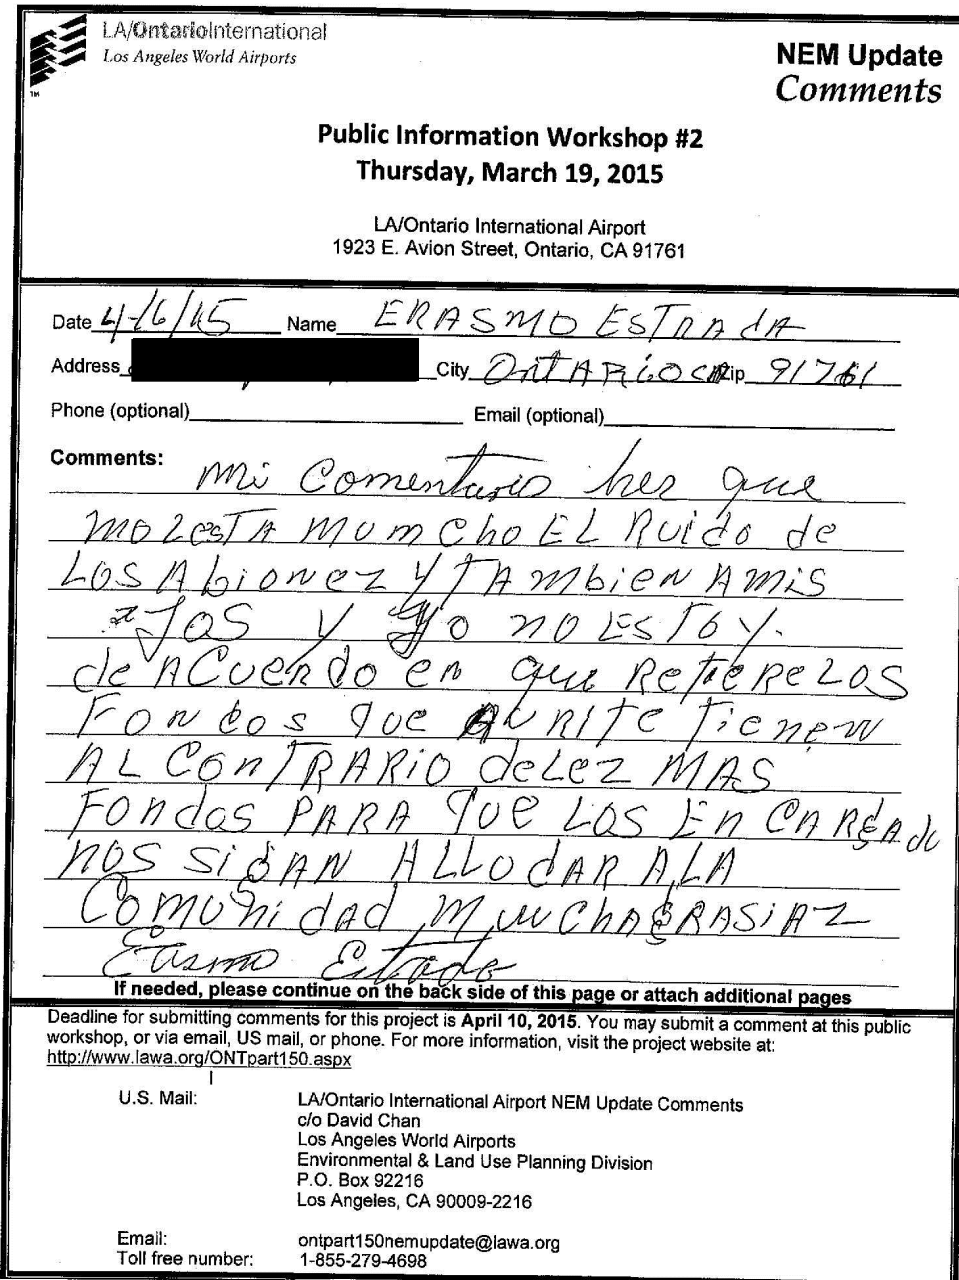 LA/OntarioInternational
Los Angeles World Airports
TM
NEM Update
Comments
Public Information Workshop #2
Thursday, March 19, 2015
LA/Ontario International Airport
1923 E. Avion Street, Ontario, CA 91761
Date 4/6/15 Name ERASMO ESTRAdA
Address City OntARiO CA Zip 91761
Phone (optional) Email (optional)
Comments: Mi Comentario hes que
MOLesTA MUmCho EL Ruido de
LOS AbioNez Y TAmbieN A Mis
iJOS y yo NO ESTOY.
de ACUeRdo en que ReTiERe LOS
FoNdos QUe AURiTE TieNeN
AL ConTRARiO deLez MAS
FOndos PARA QUE LOS EnCARgAdo
NOS SiGAN ALLUdAR A LA
COMUNidAd MuuChA GRASiAZ
Erasmo Estrada
If needed, please continue on the back side of this page or attach additional pages
Deadline for submitting comments for this project is April 10, 2015. You may submit a comment at this public
workshop, or via email, US mail, or phone. For more information, visit the project website at:
http://www.lawa.org/ONTpart150.aspx
U.S. Mail: LA/Ontario International Airport NEM Update Comments
c/o David Chan
Los Angeles World Airports
Environmental & Land Use Planning Division
P.O. Box 92216
Los Angeles, CA 90009-2216
Email: ontpart150nemupdate@lawa.org
Toll free number: 1-855-279-4698